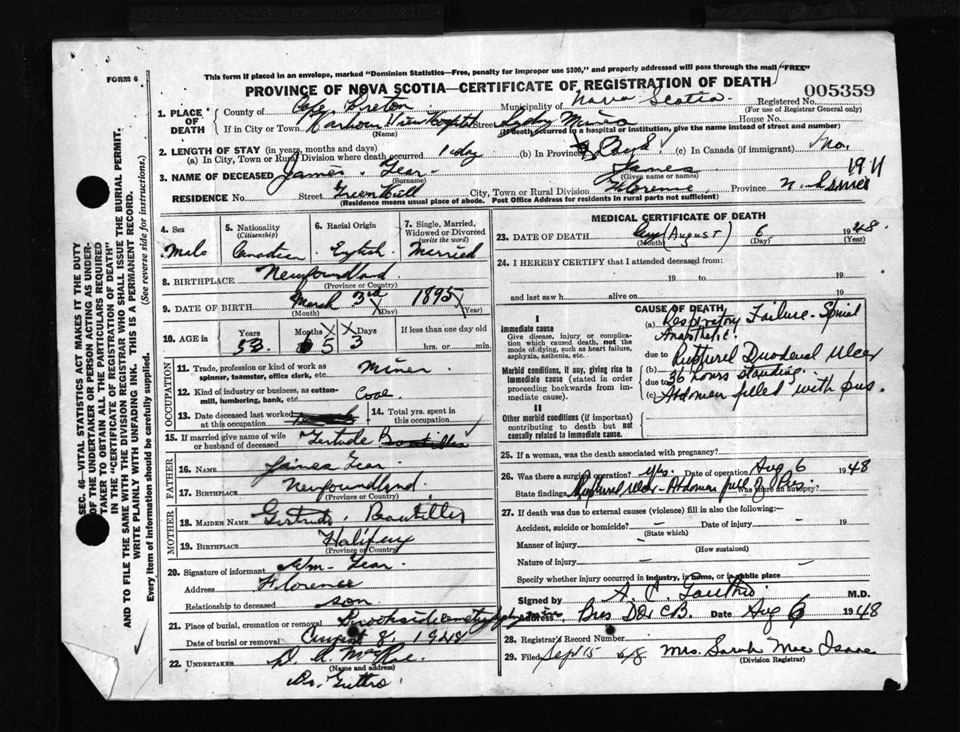 This form if placed in an envelope, marked "Dominion Statistics—Free, penalty for improper use $300," and properly addressed will pass through the mail "FREE"
FORM 6
PROVINCE OF NOVA SCOTIA—CERTIFICATE OF REGISTRATION OF DEATH
005359
1. PLACE OF DEATH
County of Cape Breton Municipality of Nova Scotia Registered No.
(For use of Registrar General only)
If in City or Town Harbour View Hospital Street Sydney Mines House No.
(Name) (If death occurred in a hospital or institution, give the name instead of street and number)
2. LENGTH OF STAY (in years, months and days)
(a) In City, Town or Rural Division where death occurred 1 day (b) In Province (c) In Canada (if immigrant) No.
3. NAME OF DECEASED James Fear James
(Surname) (Given name or names)
RESIDENCE No. Street Green Hill City, Town or Rural Division Florence Province N.S.
(Residence means usual place of abode. Post Office Address for residents in rural parts not sufficient)
4. Sex
Male
5. Nationality (Citizenship)
Canadian
6. Racial Origin
English
7. Single, Married, Widowed or Divorced (write the word)
Married
8. BIRTHPLACE Newfoundland
(Province or Country)
9. DATE OF BIRTH March 3rd 1895
(Month) (Day) (Year)
10. AGE in
Years Months Days
53 5 3
If less than one day old
hrs. or min.
OCCUPATION
11. Trade, profession or kind of work as spinner, teamster, office clerk, etc. Miner
12. Kind of industry or business, as cotton-mill, lumbering, bank, etc. Coal
13. Date deceased last worked at this occupation
14. Total yrs. spent in this occupation
15. If married give name of wife or husband of deceased Gertrude Boutilier
FATHER
16. NAME James Fear
17. BIRTHPLACE Newfoundland
(Province or Country)
MOTHER
18. MAIDEN NAME Gertrude Boutilier
19. BIRTHPLACE Halifax
(Province or Country)
20. Signature of informant Wm. Fear
Address Florence
Relationship to deceased son
21. Place of burial, cremation or removal Brookside Cemetery
Date of burial or removal August 8, 1948
22. UNDERTAKER D. A. MacRae
(Name and address)
MEDICAL CERTIFICATE OF DEATH
23. DATE OF DEATH Aug (August) 6 1948
(Month) (Day) (Year)
24. I HEREBY CERTIFY that I attended deceased from:
19 to 19
and last saw h alive on 19
CAUSE OF DEATH
I
Immediate cause
Give disease, injury or complication which caused death, not the mode of dying, such as heart failure, asphyxia, asthenia, etc.
Morbid conditions, if any, giving rise to immediate cause (stated in order proceeding backwards from immediate cause).
II
Other morbid conditions (if important) contributing to death but not causally related to immediate cause.
(a) Respiratory Failure. Spinal Anasthetic.
due to
(b) Ruptured Duodenal Ulcer
36 hours standing.
due to
(c) Abdomen filled with pus.
25. If a woman, was the death associated with pregnancy?
26. Was there a surgical operation? Yes. Date of operation Aug 6 1948
State findings Ruptured Ulcer - Abdomen full of Pus. Was there an autopsy?
27. If death was due to external causes (violence) fill in also the following:—
Accident, suicide or homicide? Date of injury 19
(State which)
Manner of injury
(How sustained)
Nature of injury
Specify whether injury occurred in industry, in home, or in public place
Signed by A. C. M.D.
Address Date Aug 6 1948
28. Registrar's Record Number
29. Filed Sept 15 48 Mrs. Sarah Mac Isaac
(Division Registrar)
SEC. 46—VITAL STATISTICS ACT MAKES IT THE DUTY
OF THE UNDERTAKER OR PERSON ACTING AS UNDER-
TAKER TO OBTAIN ALL THE PARTICULARS REQUIRED
IN THE "CERTIFICATE OF REGISTRATION OF DEATH"
AND TO FILE THE SAME WITH THE DIVISION REGISTRAR WHO SHALL ISSUE THE BURIAL PERMIT.
WRITE PLAINLY WITH UNFADING INK. THIS IS A PERMANENT RECORD.
Every item of information should be carefully supplied. (See reverse side for instructions).